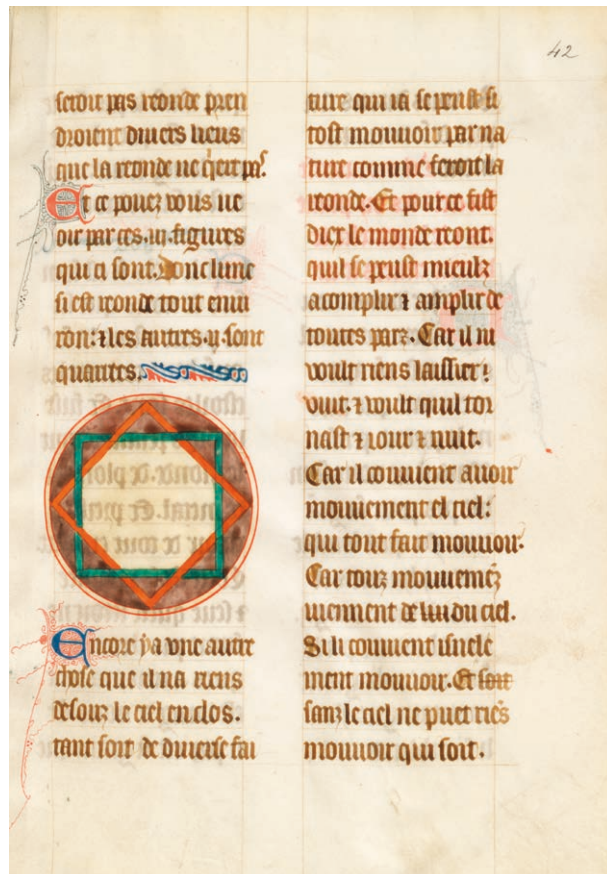 42
seroit pas reonde pren
droient diuers lieus
que la reonde ne q̄rit pas.
Et ce pouez vous ue
oir par ces .iij. figures
qui ci sont. Donc lune
si est reonde tout enui
ron: ⁊ les autres .ij. sont
quarrees.
Encore y a vne autre
chose que il na riens
desouz le ciel enclos.
tant soit de diuerse fai
ture qui ia se peust si
tost mouuoir par na
ture comme feroit la
reonde. Et pour ce fist
diex le monde reont.
quil se peust mieulz
acomplir ⁊ amplir de
toutes parz. Car il ni
voult riens laissier
vuit. ⁊ voult quil tor
nast ⁊ iour ⁊ nuit.
Car il couuient auoir
mouuement el ciel:
qui tout fait mouuoir.
Car touz mouuemēz
uiennent de lui du ciel.
Si li couuient isnele
ment mouuoir. Et soit
sanz le ciel ne puet riēs
mouuoir qui soit.